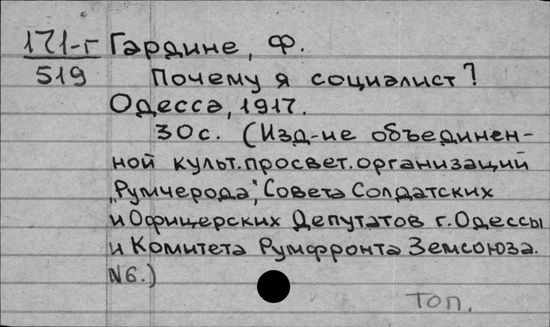 171-г Гардине, Ф.
519 Почему я социалист?
Одесса, 1917.
30с. (Изд-ие объединен-
ной культ.просвет.организаций
„Румчерода", Совета Солдатских
и Офицерских Депутатов г. Одессы
и Комитета Румфронта Земсоюза.
N6.)
Топ.